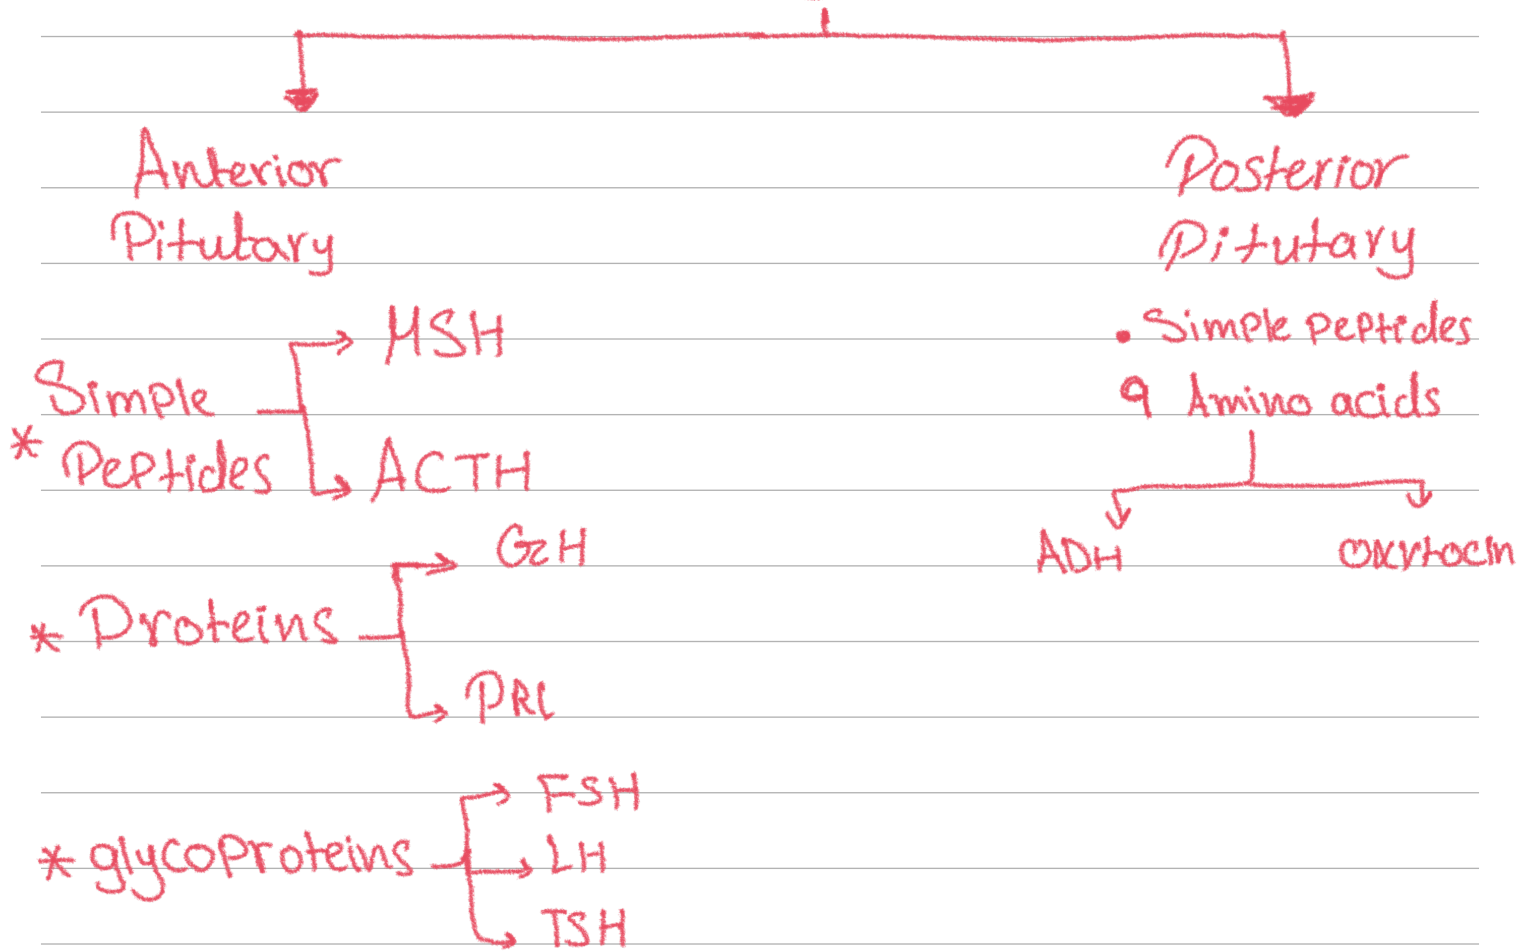 Anterior
Pitutary
MSH
Simple
* Peptides
ACTH
GH
* Proteins
PRL
FSH
* glycoproteins
LH
TSH
Posterior
Pitutary
• Simple peptides
9 Amino acids
ADH
oxytocin